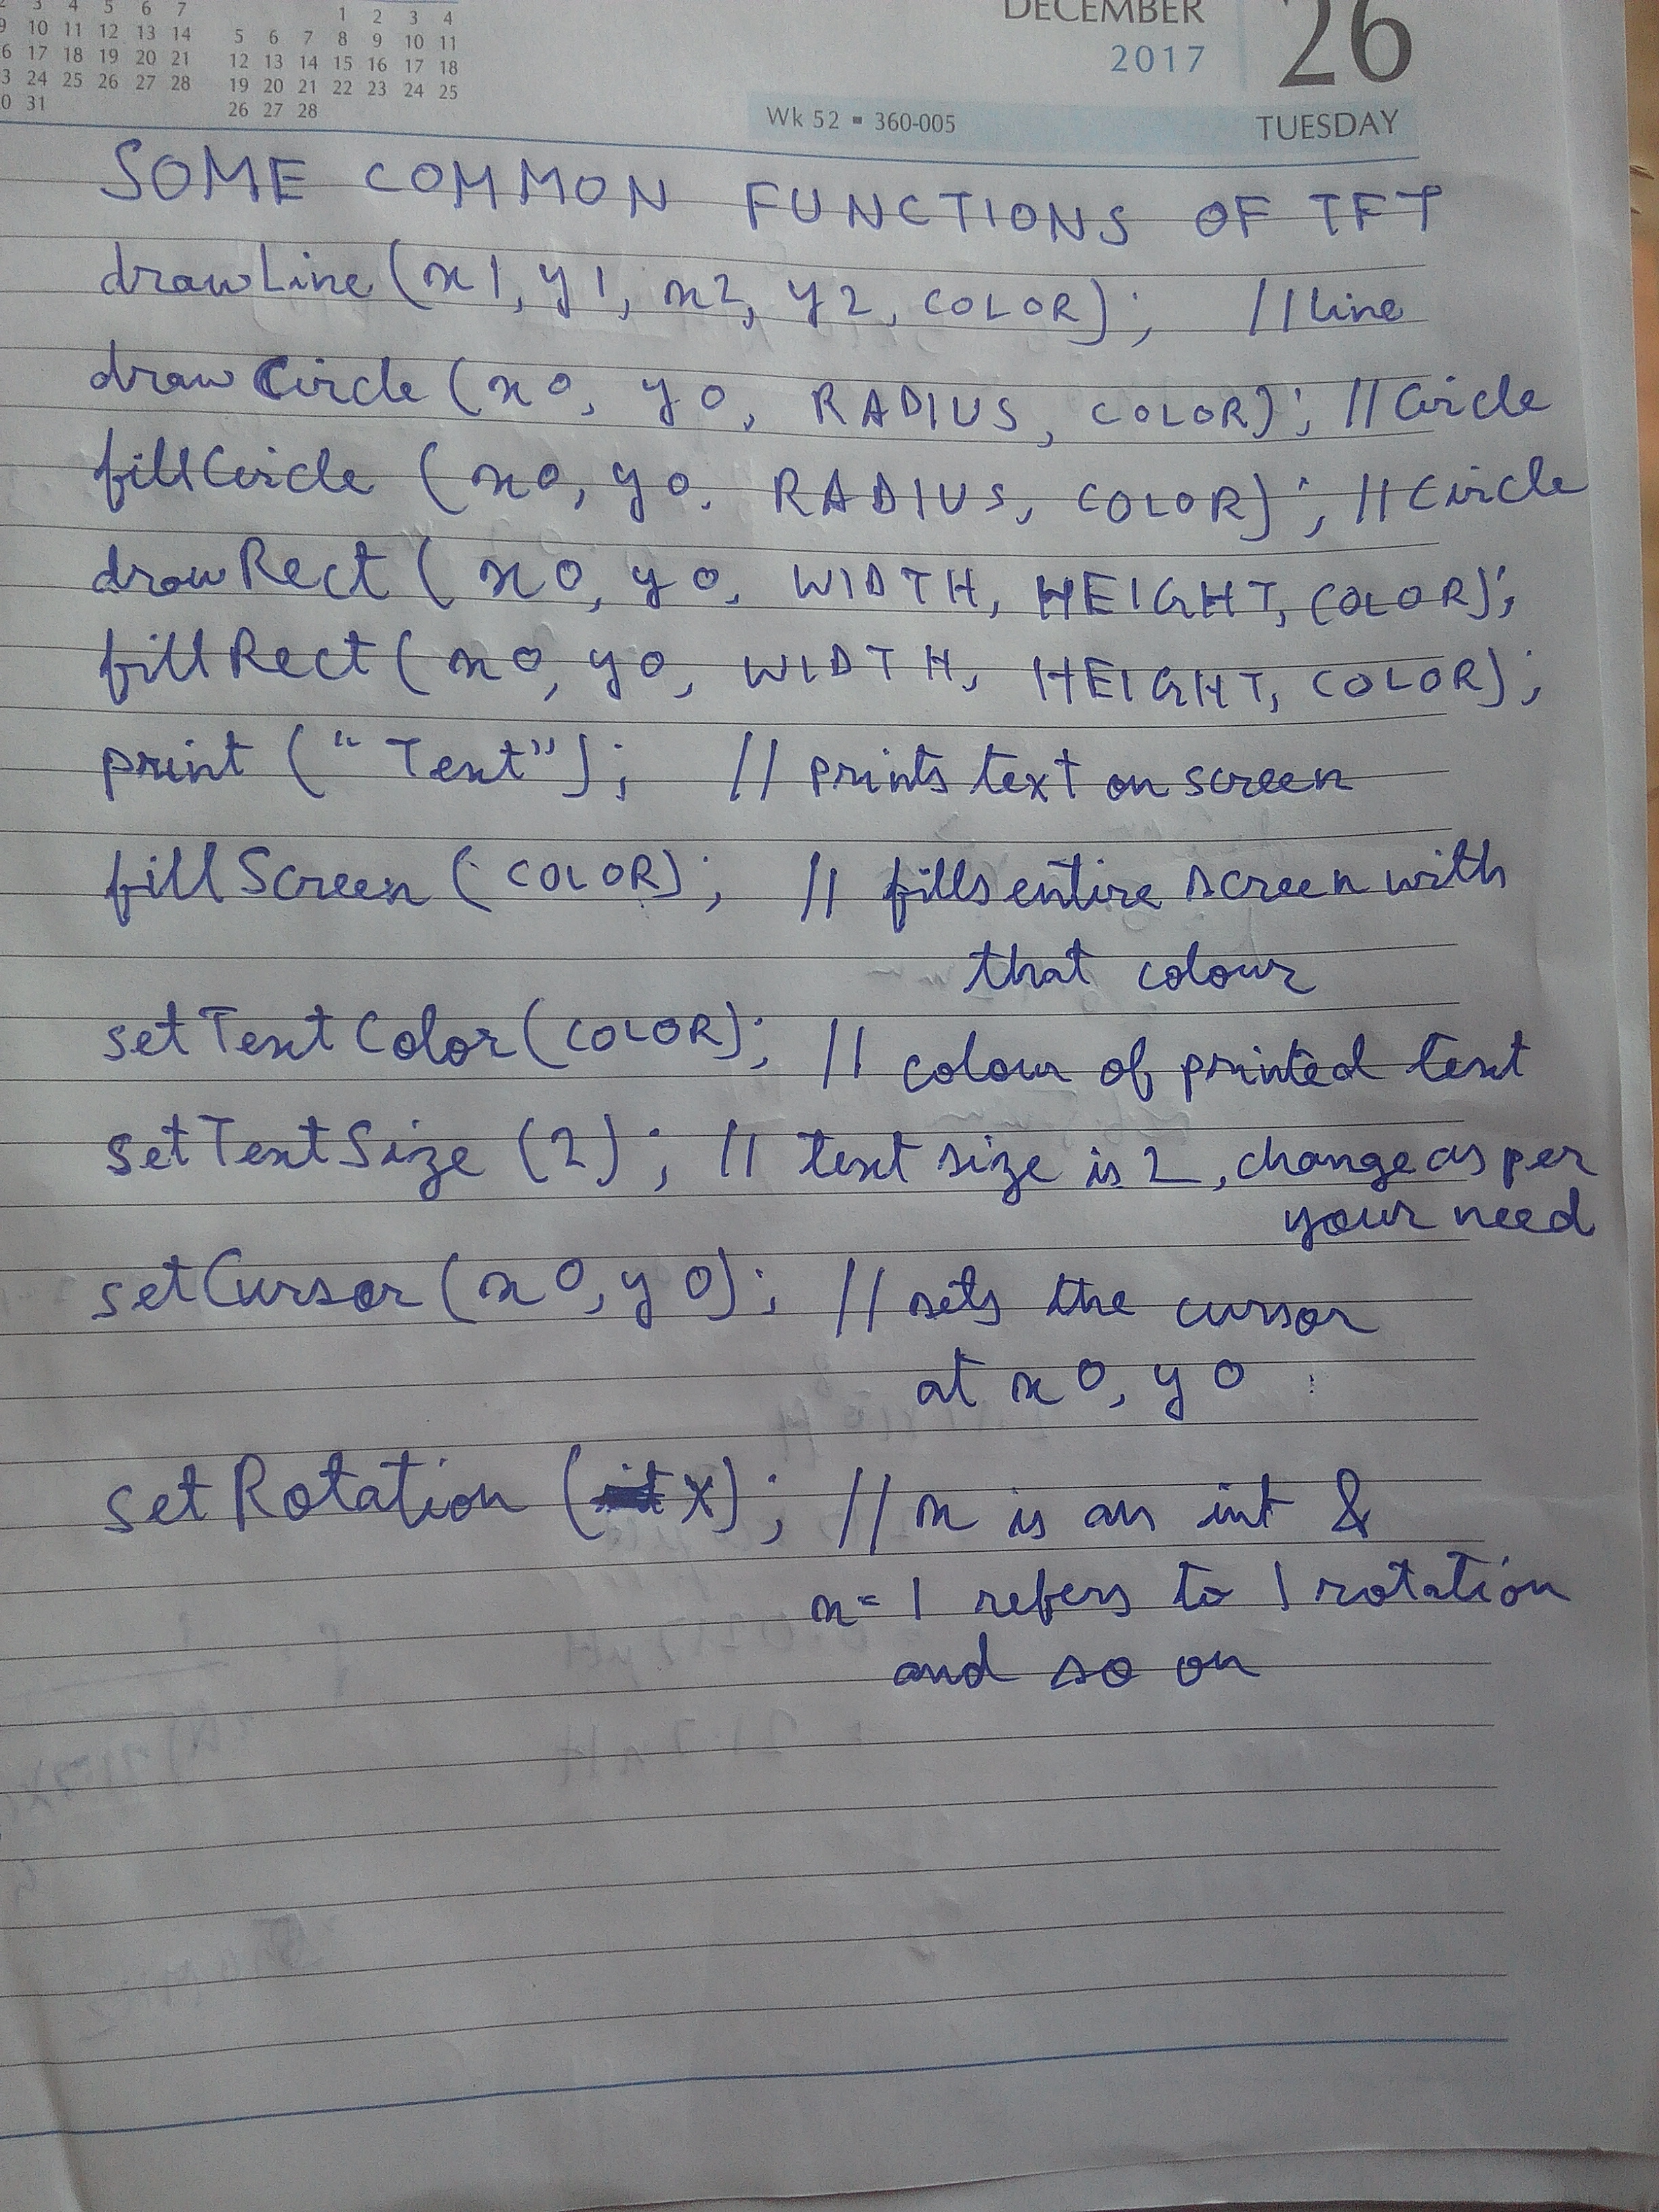 3 4 5 6 7
9 10 11 12 13 14
6 17 18 19 20 21
3 24 25 26 27 28
0 31
1 2 3 4
5 6 7 8 9 10 11
12 13 14 15 16 17 18
19 20 21 22 23 24 25
26 27 28
DECEMBER
2017
26
Wk 52 ▪ 360-005
TUESDAY
SOME COMMON FUNCTIONS OF TFT
drawLine (x1, y1, x2, y2, COLOR); //line
drawCircle (x0, y0, RADIUS, COLOR); //Circle
fillCircle (x0, y0, RADIUS, COLOR); //Circle
drawRect (x0, y0, WIDTH, HEIGHT, COLOR);
fillRect (x0, y0, WIDTH, HEIGHT, COLOR);
print ("Text"); // prints text on screen
fillScreen (COLOR); // fills entire screen with
that colour
setTextColor (COLOR); // colour of printed text
setTextSize (2); // text size is 2, change as per
your need
setCursor (x0, y0); // sets the cursor
at x0, y0
setRotation (X); // x is an int &
x=1 refers to 1 rotation
and so on